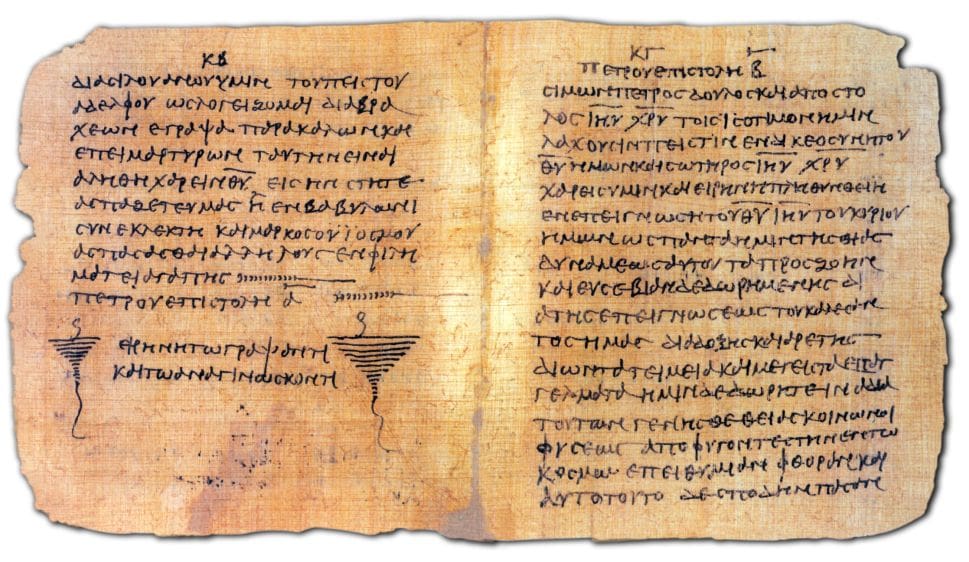 ΚΒ
ΔΙΑ ϹΙΛΟΥΑΝΟΥ ΥΜΙΝ ΤΟΥ ΠΕΙϹΤΟΥ
ΑΔΕΛΦΟΥ ΩϹ ΛΟΓΕΙΖΟΜΑΙ ΔΙΑ ΒΡΑ
ΧΕΩΝ ΕΓΡΑΨΑ ΠΑΡΑΚΑΛΩΝ ΚΑΙ
ΕΠΕΙΜΑΡΤΥΡΩΝ ΤΑΥΤΗΝ ΕΙΝΑΙ
ΑΛΗΘΗ ΧΑΡΕΙΝ Θ̅Υ̅ ΕΙϹ ΗΝ ϹΤΗΤΕ
ΑϹΠΑΖΕΤΕ ΥΜΑϹ Η ΕΝ ΒΑΒΥΛΩΝΙ
ϹΥΝΕΚΛΕΚΤΗ ΚΑΙ ΜΑΡΚΟϹ Ο ΥΙΟϹ ΜΟΥ
ΑϹΠΑϹΑϹΘΑΙ ΑΛΛΗΛΟΥϹ ΕΝ ΦΙΛΗ
ΜΑΤΕΙ ΑΓΑΠΗϹ
ΠΕΤΡΟΥ ΕΠΙϹΤΟΛΗ Α̅
ΕΙΡΗΝΗ ΤΩ ΓΡΑΨΑΝΤΙ
ΚΑΙ ΤΩ ΑΝΑΓΙΝΩϹΚΟΝΤΙ
ΚΓ
ΠΕΤΡΟΥ ΕΠΙϹΤΟΛΗ Β̅
ϹΙΜΩΝ ΠΕΤΡΟϹ ΔΟΥΛΟϹ ΚΑΙ ΑΠΟϹΤΟ
ΛΟϹ Ι̅Η̅Υ̅ Χ̅Ρ̅Υ̅ ΤΟΙϹ ΙϹΟΤΙΜΟΝ ΗΜΙΝ
ΛΑΧΟΥϹΙΝ ΠΕΙϹΤΙΝ ΕΝ ΔΙΚΕΟϹΥΝΗ ΤΟΥ
Θ̅Υ̅ ΗΜΩΝ ΚΑΙ ϹΩΤΗΡΟϹ Ι̅Η̅Υ̅ Χ̅Ρ̅Υ̅
ΧΑΡΕΙϹ ΥΜΙΝ ΚΑΙ ΕΙΡΗΝΗ ΠΛΗΘΥΝΘΕΙΗ
ΕΝ ΕΠΕΙΓΝΩϹΗ ΤΟΥ Θ̅Υ̅ Ι̅Η̅Υ̅ ΤΟΥ ΚΥΡΙΟΥ
ΗΜΩΝ ΩϹ ΠΑΝΤΑ ΗΜΙΝ ΤΗϹ ΘΙΑϹ
ΔΥΝΑΜΕΩϹ ΑΥΤΟΥ ΤΑ ΠΡΟϹ ΖΩΗΝ
ΚΑΙ ΕΥϹΕΒΙΑΝ ΔΕΔΩΡΗΜΕΝΗϹ ΔΙ
Α ΤΗϹ ΕΠΕΙΓΝΩϹΕΩϹ ΤΟΥ ΚΑΛΕϹΑΝ
ΤΟϹ ΗΜΑϹ ΔΙΑ ΔΟΞΗϹ ΚΑΙ ΑΡΕΤΗϹ
ΔΙ ΩΝ ΤΑ ΤΕΙΜΕΙΑ ΚΑΙ ΜΕΓΙϹΤΑ ΕΠΑΓ
ΓΕΛΜΑΤΑ ΗΜΙΝ ΔΕΔΩΡΗΤΕ ΙΝΑ ΔΙΑ
ΤΟΥΤΩΝ ΓΕΝΗϹΘΕ ΘΕΙΑϹ ΚΟΙΝΩΝΟΙ
ΦΥϹΕΩϹ ΑΠΟΦΥΓΟΝΤΕϹ ΤΗΝ ΕΝ ΤΩ
ΚΟϹΜΩ ΕΠΕΙΘΥΜΙΑΝ ΦΘΟΡΑΝ ΚΑΙ
ΑΥΤΟ ΤΟΥΤΟ ΔΕ ϹΠΟΔΗΝ ΠΑϹΑΝ